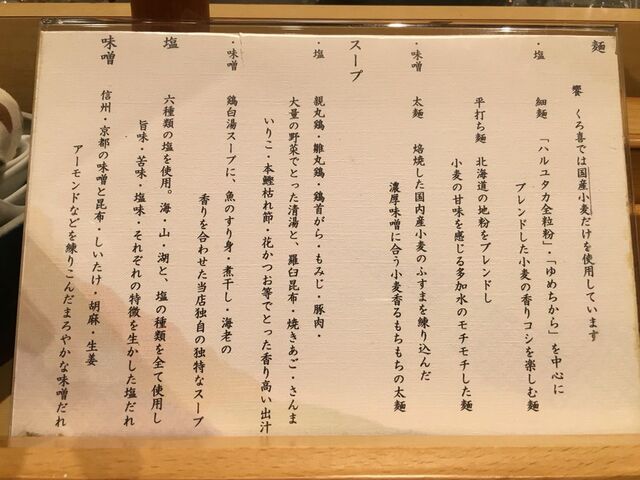 麺
饗 くろ喜では国産小麦だけを使用しています
・塩 細麺 「ハルユタカ全粒粉」・「ゆめちから」を中心に
ブレンドした小麦の香りコシを楽しむ麺
平打ち麺 北海道の地粉をブレンドし
小麦の甘味を感じる多加水のモチモチした麺
・味噌 太麺 焙焼した国内産小麦のふすまを練り込んだ
濃厚味噌に合う小麦香るもちもちの太麺
スープ
・塩 親丸鶏・雛丸鶏・鶏首がら・もみじ・豚肉・
大量の野菜でとった清湯と、羅臼昆布・焼きあご・さんま
いりこ・本鰹枯れ節・花かつお等でとった香り高い出汁
・味噌 鶏白湯スープに、魚のすり身・煮干し・海老の
香りを合わせた当店独自の独特なスープ
塩 六種類の塩を使用。海・山・湖と、塩の種類を全て使用し
旨味・苦味・塩味・それぞれの特徴を生かした塩だれ
味噌 信州・京都の味噌と昆布・しいたけ・胡麻・生姜
アーモンドなどを練りこんだまろやかな味噌だれ